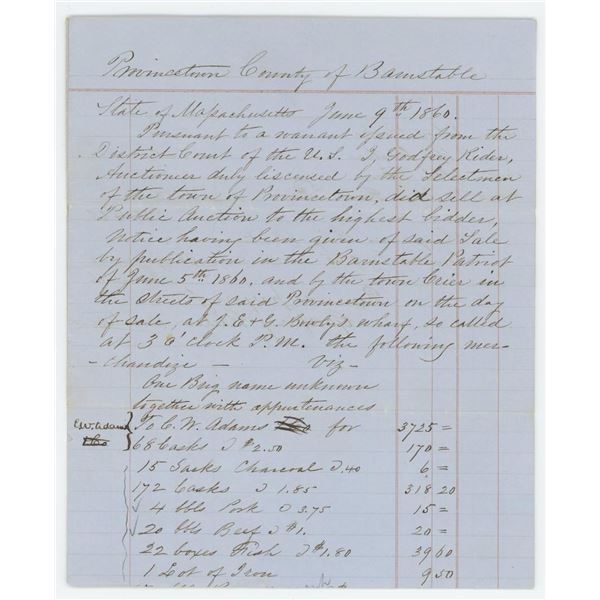 Provincetown County of Barnstable
State of Massachusetts June 9th 1860.
Pursuant to a warrant issued from the
District Court of the U.S. I, Godfrey Rider,
Auctioneer duly liscensed by the Selectmen
of the town of Provincetown, did sell at
Public Auction to the highest bidder,
Notice having been given of said Sale
by publication in the Barnstable Patriot
of June 5th 1860. and by the town Crier in
the streets of said Provincetown on the day
of sale, at J. E. & G. Bowly's wharf, so called
at 3 O'Clock P.M. the following mer-
-chandize — Viz -
One Brig name unknown
together with appurtenances
E.W. Adams
To E. W. Adams for 3725 =
68 Casks @ $2.50 170 =
15 Sacks Charcoal @ .40 6 =
172 Casks @ 1.85 318 20
4 bbls Pork @ 3.75 15 =
20 bbls Beef @ $1. 20 =
22 boxes Fish @ $1.80 39 60
1 Lot of Iron 9.50